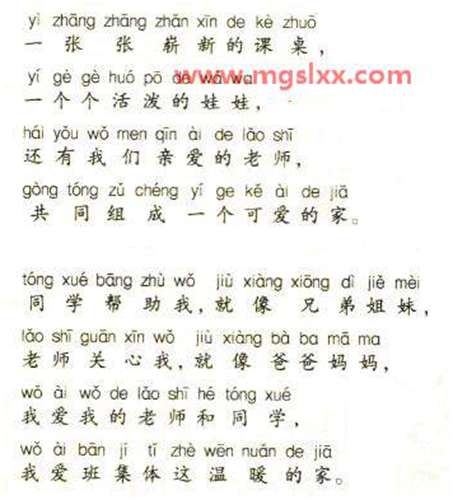 yì zhāng zhāng zhǎn xīn de kè zhuō
一张张崭新的课桌，
yí gè gè huó pō de wá wa
www.mgslxx.com
一个个活泼的娃娃，
hái yǒu wǒ men qīn ài de lǎo shī
还有我们亲爱的老师，
gòng tóng zǔ chéng yí ge kě ài de jiā
共同组成一个可爱的家。
tóng xué bāng zhù wǒ jiù xiàng xiōng dì jiě mèi
同学帮助我，就像兄弟姐妹，
lǎo shī guān xīn wǒ jiù xiàng bà ba mā ma
老师关心我，就像爸爸妈妈，
wǒ ài wǒ de lǎo shī hé tóng xué
我爱我的老师和同学，
wǒ ài bān jí tǐ zhè wēn nuǎn de jiā
我爱班集体这温暖的家。